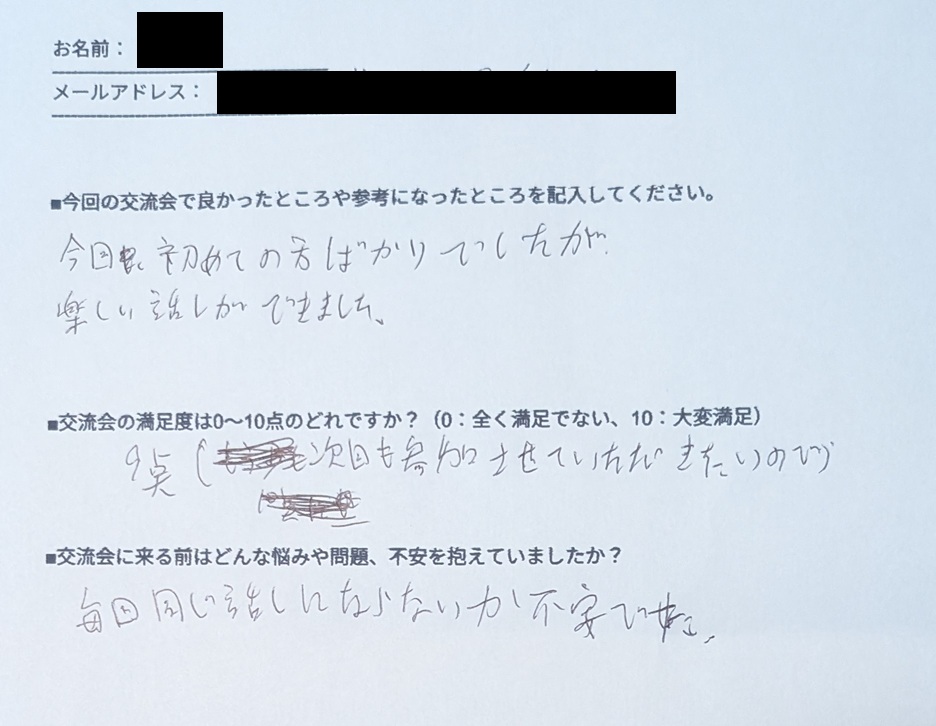 お名前：
メールアドレス：
■今回の交流会で良かったところや参考になったところを記入してください。
今回も初めての方ばかりでしたが
楽しい話しができました。
■交流会の満足度は0〜10点のどれですか？（0：全く満足でない、10：大変満足）
9点（次回も参加させていただきたいので）
■交流会に来る前はどんな悩みや問題、不安を抱えていましたか？
毎回同じ話しにならないか不安でした。